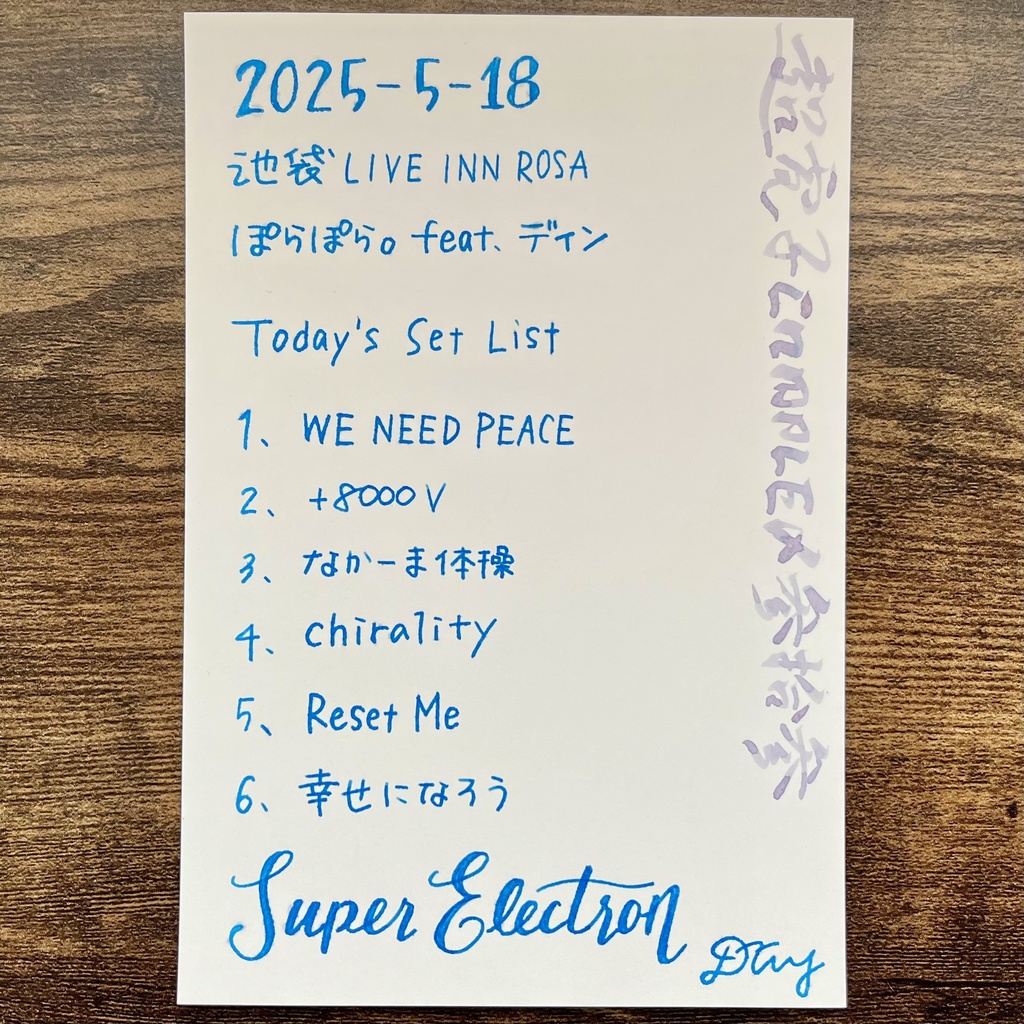 2025-5-18
池袋 LIVE INN ROSA
ぽらぽら。feat. ディン
Today's Set List
1、WE NEED PEACE
2、+8000V
3、なかーま体操
4、chirality
5、Reset Me
6、幸せになろう
Super Electron
Day